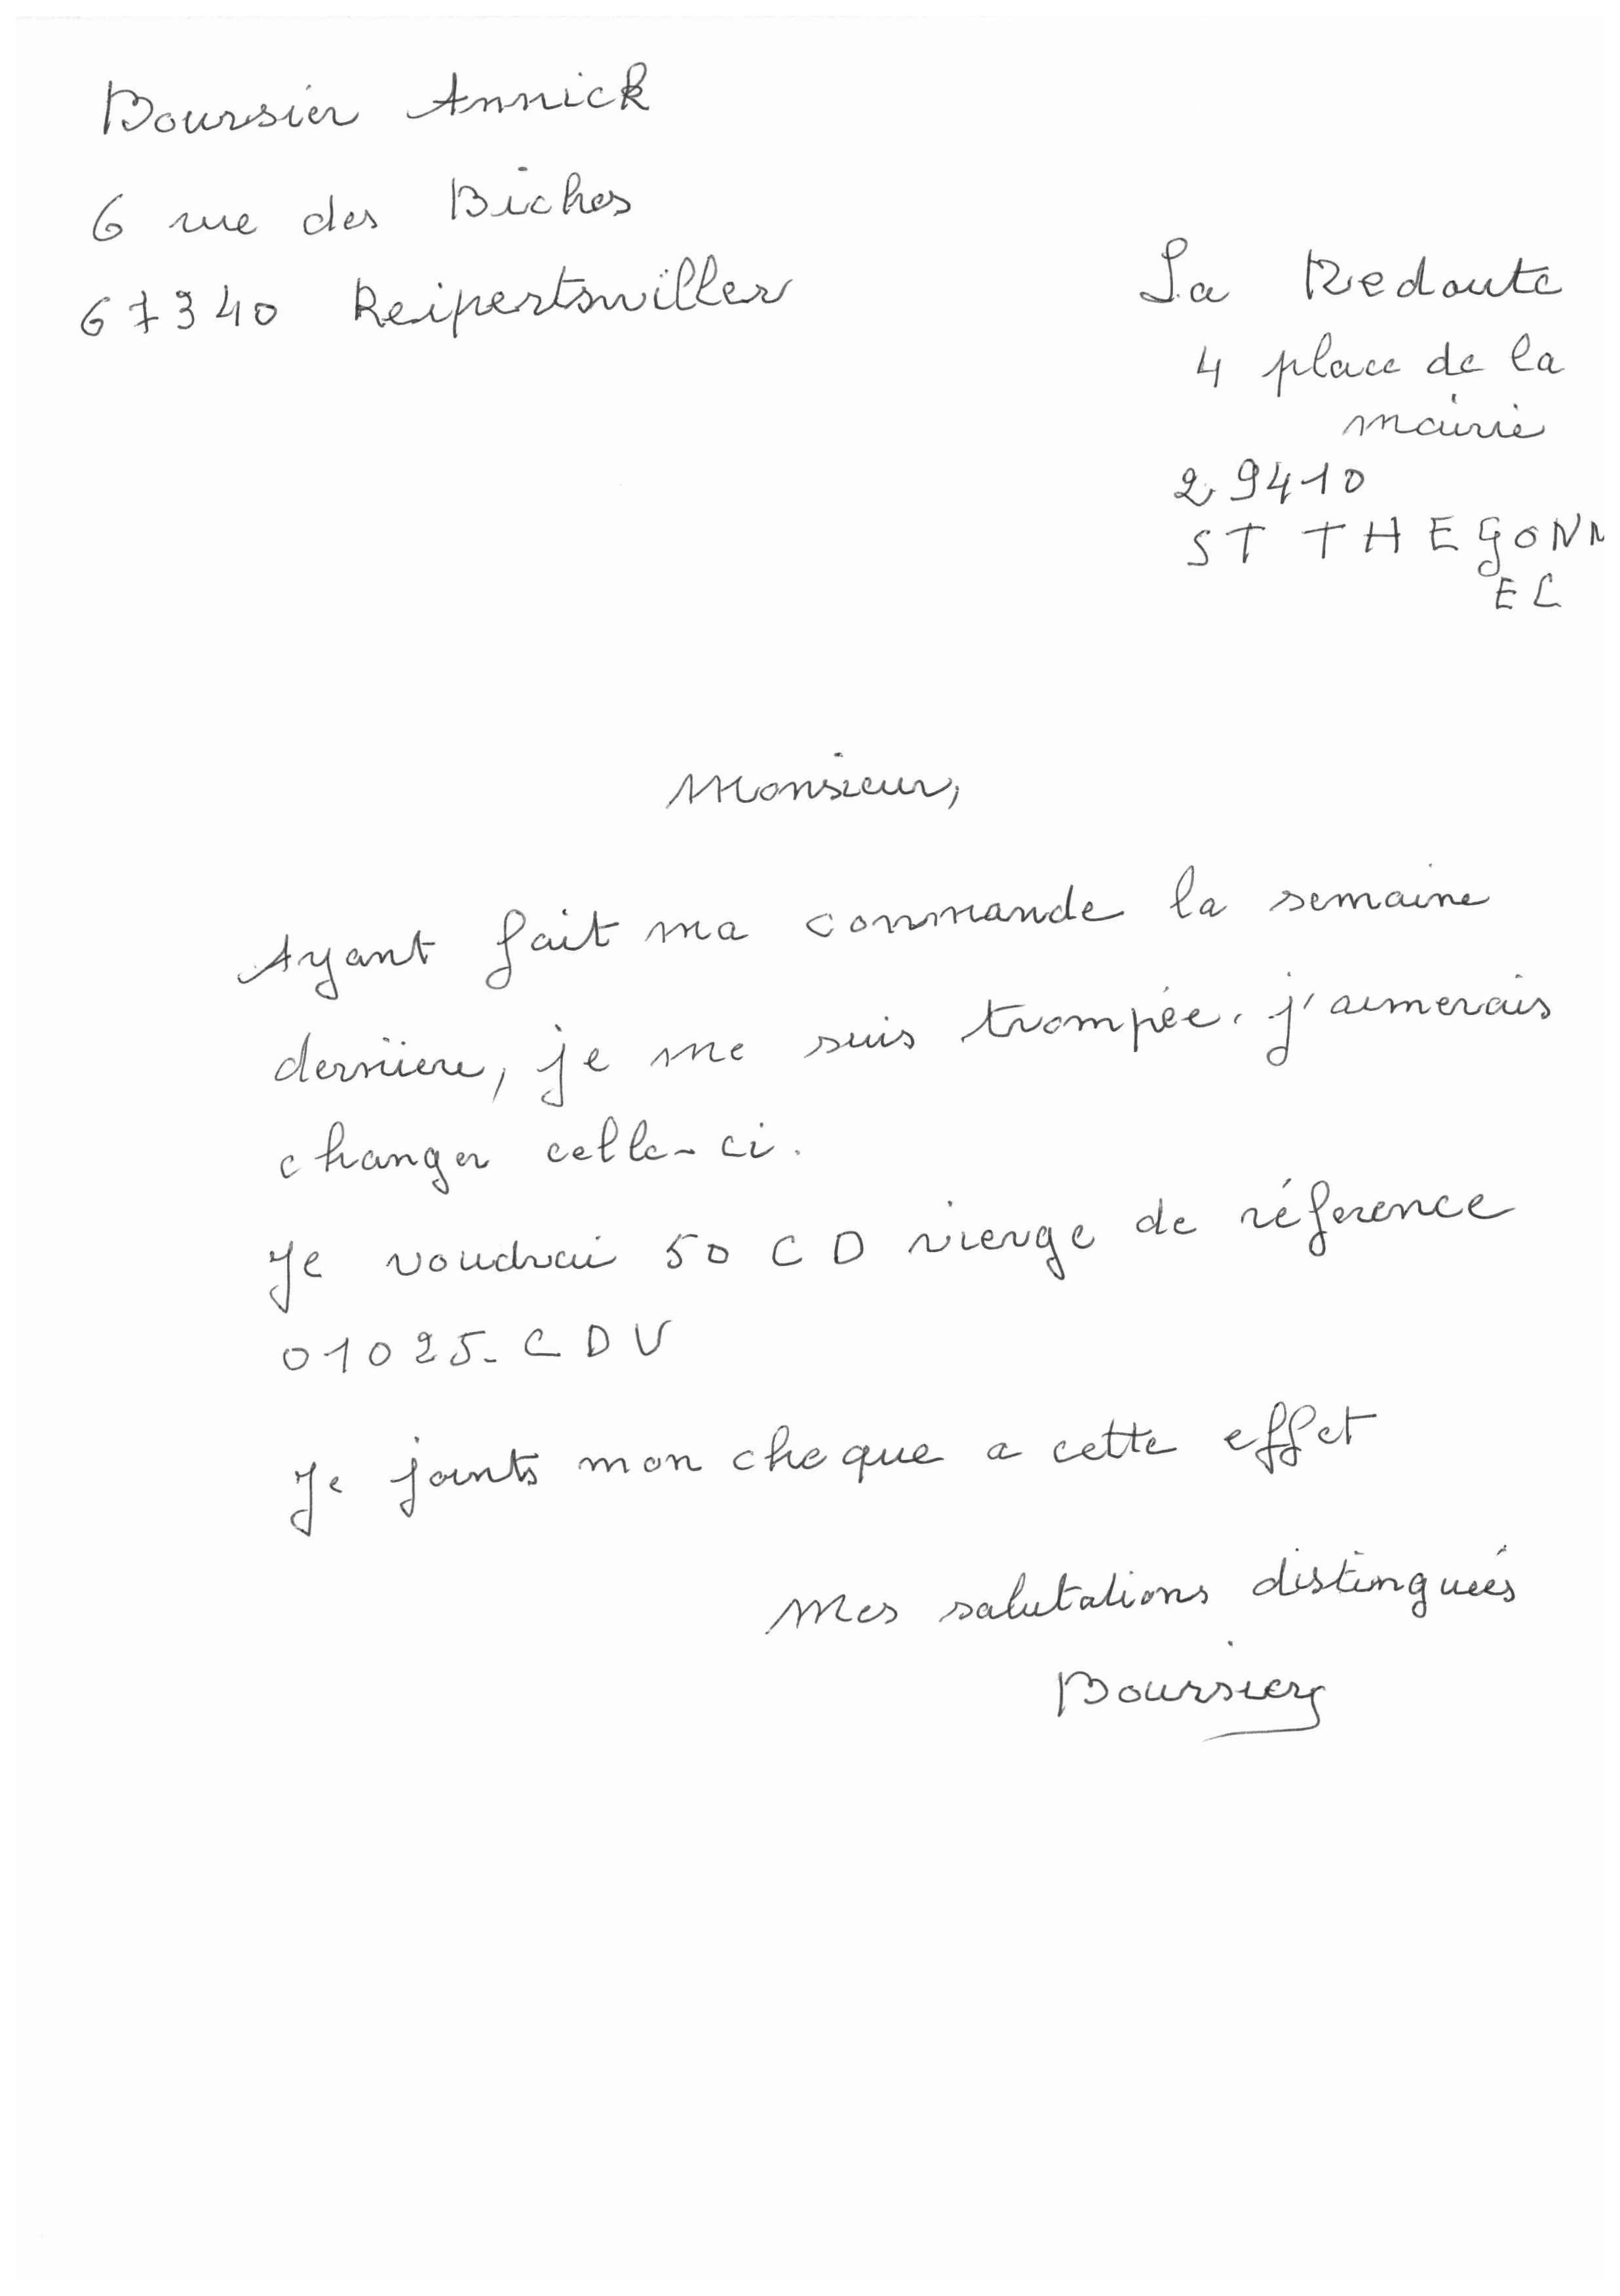 Boursier Annick
6 rue des Biches
67340 Reipertswiller
La Redoute
4 place de la
mairie
29410
ST THEGONN
EL
Monsieur,
Ayant fait ma commande la semaine
derniere, je me suis trompée. j'aimerais
changer celle-ci.
Je voudrai 50 CD vierge de réference
01025-CDV
Je joints mon cheque a cette effet
Mes salutations distinguées
Boursier